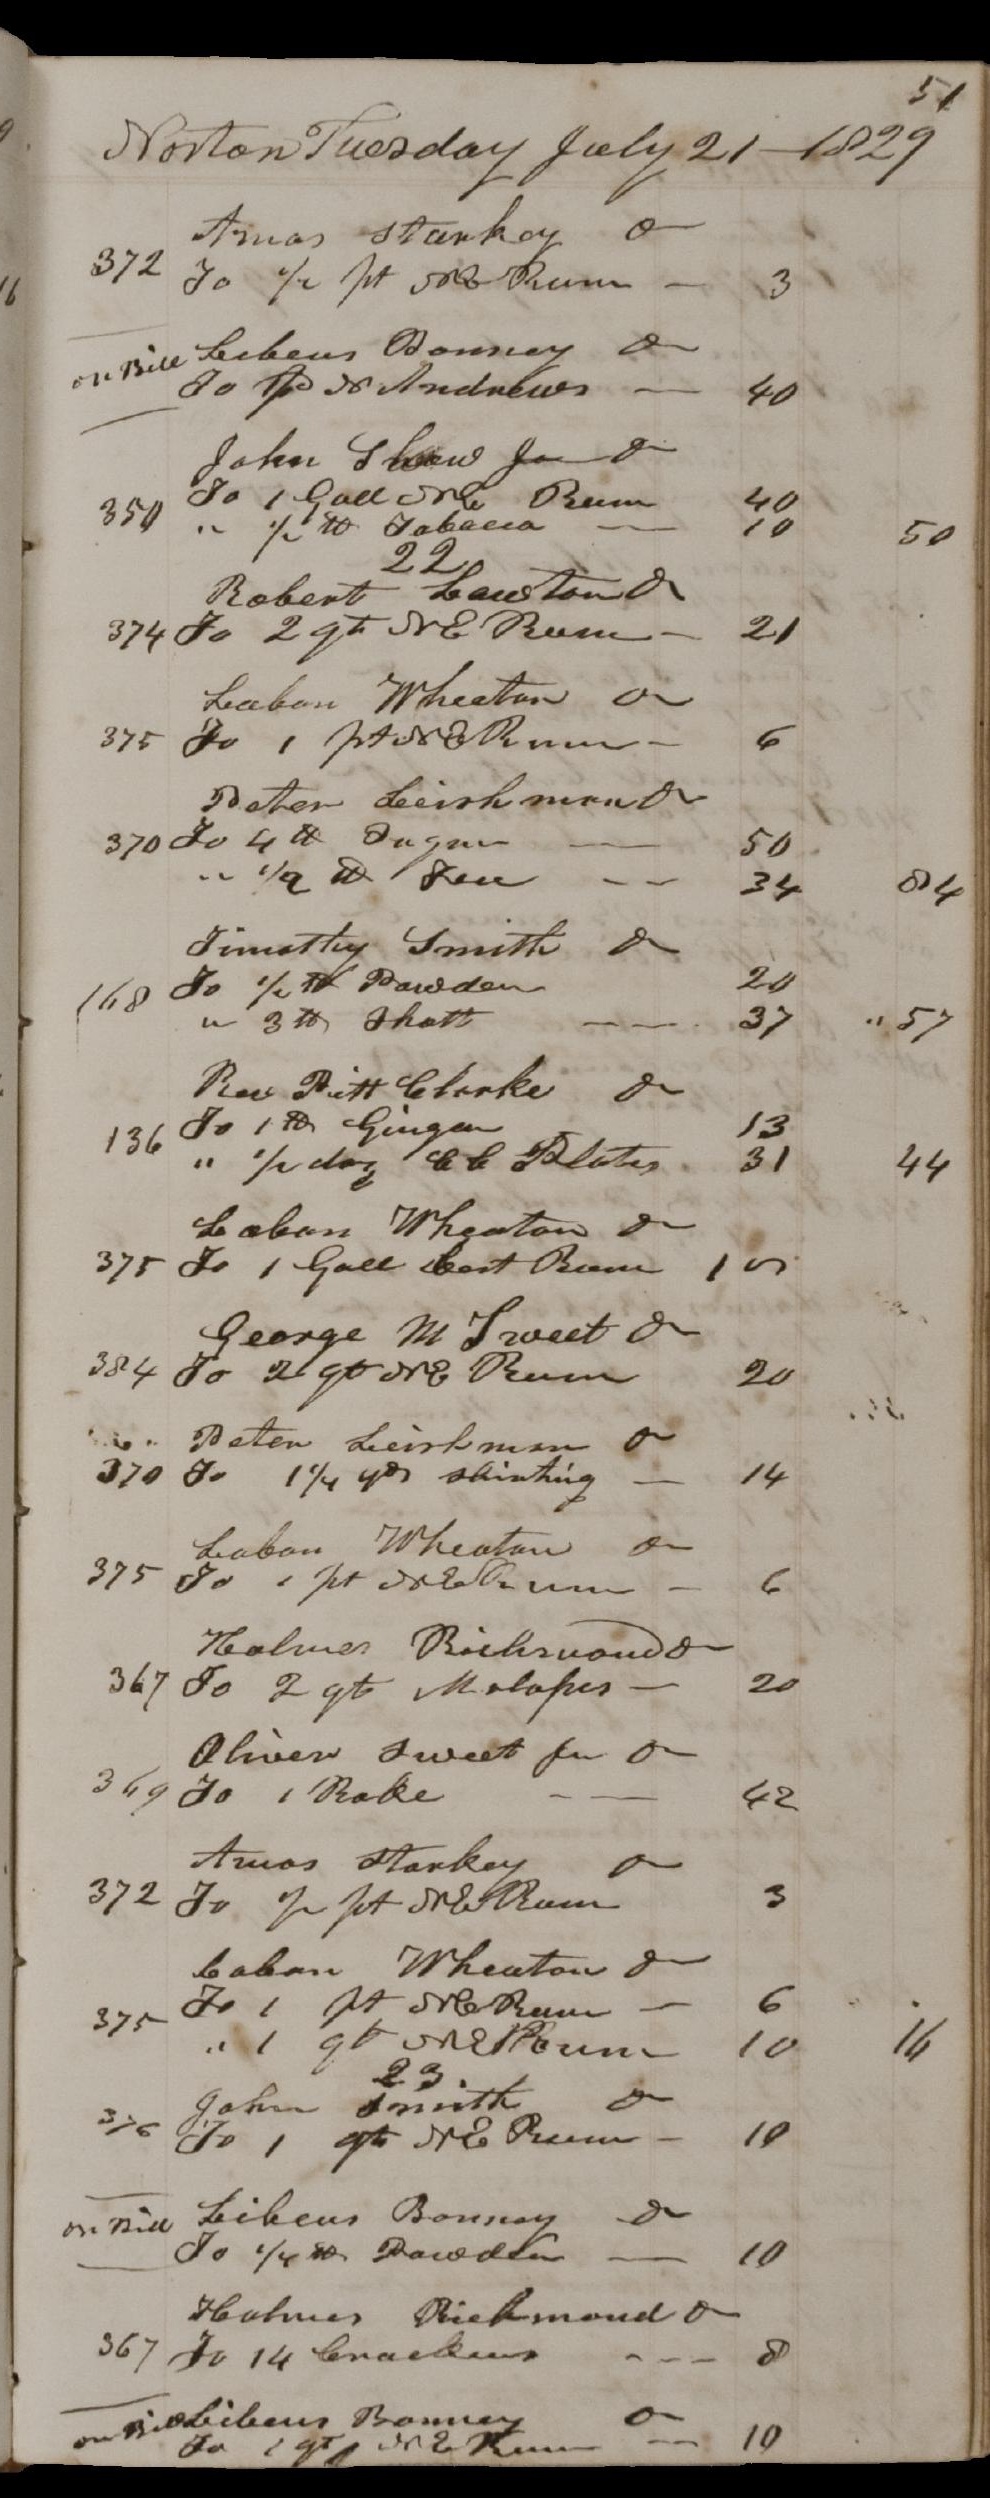 51
Norton Tuesday July 21 - 1829
Amos Starkey Dr
372 To 1/2 pt NE Rum - 3
on Bill Libeus Bonney Dr
To N Andrews - 40
John Shaw Jr Dr
350 To 1 Gall NE Rum 40
" 1/2 lb Tobacco - 10 50
22
Robert Lawton Dr
374 To 2 qts NE Rum - 21
Laban Wheaton Dr
375 To 1 pt NE Rum - 6
Peter Leishman Dr
370 To 4 lb Sugar - 50
" 1/2 lb Tea - - 34 84
Timothy Smith Dr
168 To 1/2 lb Powder 20
" 3 lb Shott - - 37 " 57
Rev Pitt Clarke Dr
136 To 1 lb Ginger 13
" 1/2 doz CC Plates 31 44
Laban Wheaton Dr
375 To 1 Gall best Rum 1 00
George M Sweet Dr
384 To 2 qts NE Rum 20
Peter Leishman Dr
370 To 1 1/4 yds shirting - 14
Laban Wheaton Dr
375 To 1 pt NE Rum - 6
Holmes Richmond Dr
367 To 2 qts Molasses - 20
Oliver Sweet Jr Dr
369 To 1 Rake - - 42
Amos Starkey Dr
372 To 1/2 pt NE Rum 3
Laban Wheaton Dr
375 To 1 pt NE Rum - 6
" 1 qt NE Rum 10 16
23.
John Smith Dr
376 To 1 qt NE Rum - 10
on Bill Libeus Bonney Dr
To 1/4 lb Powder - 10
Holmes Richmond Dr
367 To 14 Crackers - - - 8
on Bill Libeus Bonney Dr
To 1 qt NE Rum - - 10